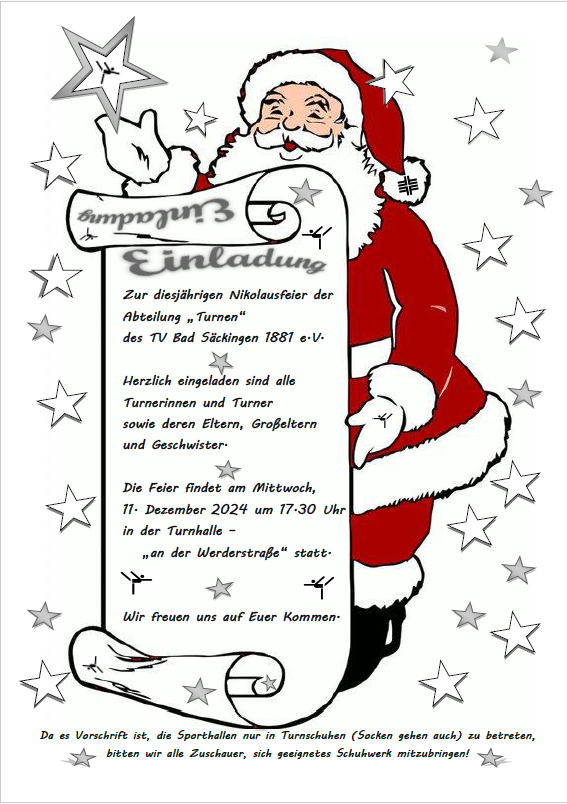 Einladung
Einladung
Zur diesjährigen Nikolausfeier der
Abteilung „Turnen“
des TV Bad Säckingen 1881 e.V.
Herzlich eingeladen sind alle
Turnerinnen und Turner
sowie deren Eltern, Großeltern
und Geschwister.
Die Feier findet am Mittwoch,
11. Dezember 2024 um 17.30 Uhr
in der Turnhalle –
„an der Werderstraße“ statt.
Wir freuen uns auf Euer Kommen.
Da es Vorschrift ist, die Sporthallen nur in Turnschuhen (Socken gehen auch) zu betreten,
bitten wir alle Zuschauer, sich geeignetes Schuhwerk mitzubringen!